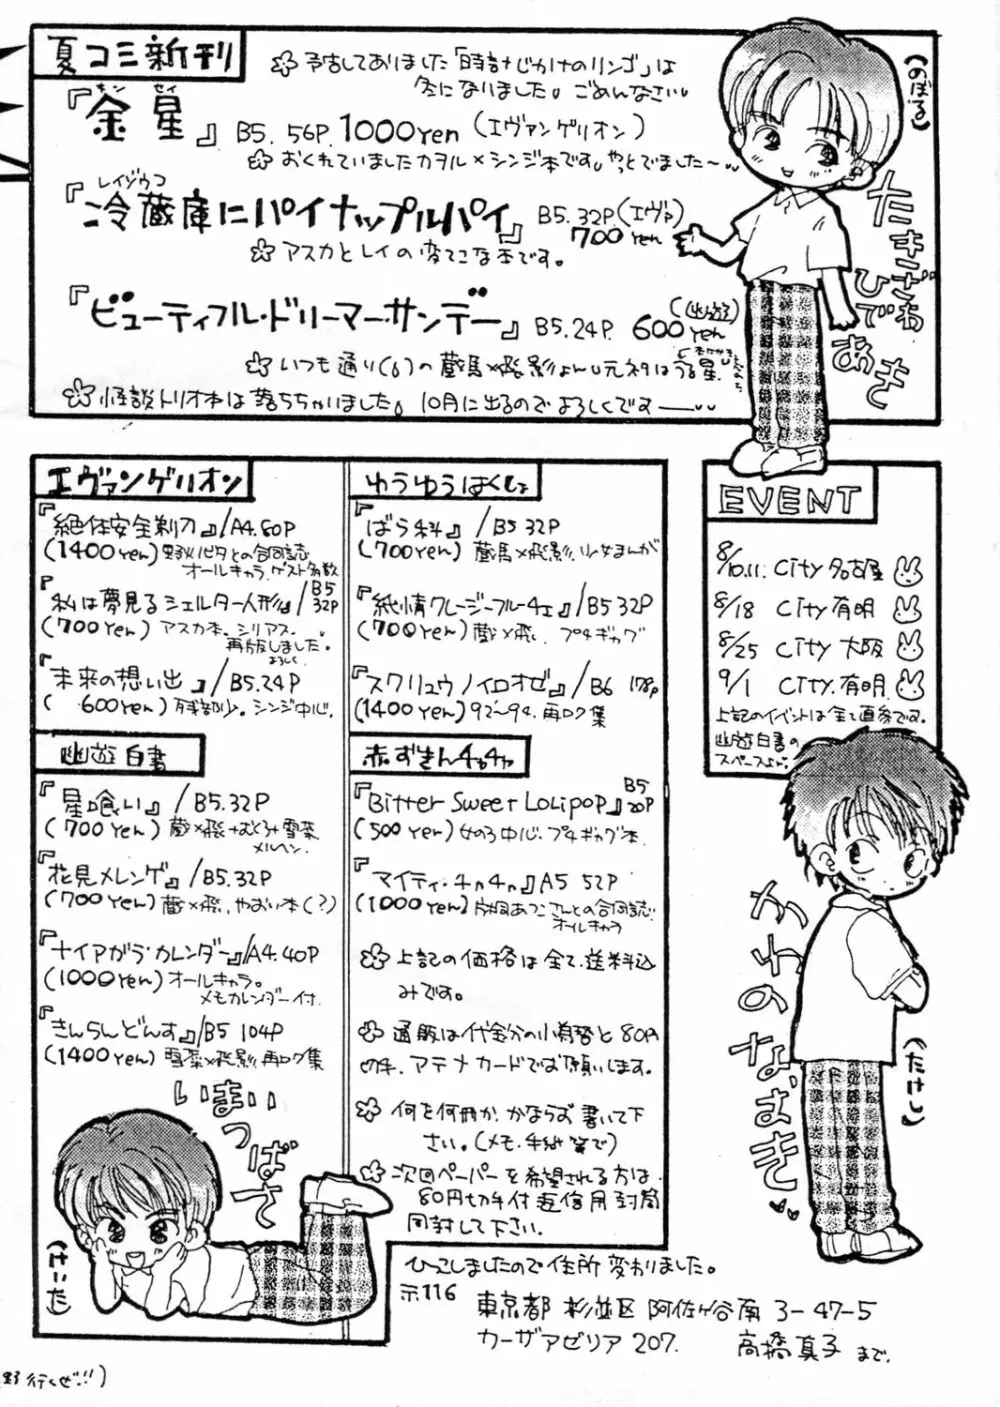 夏コミ新刊
☆予告してありました「時計じかけのリンゴ」は
冬になりました。ごめんなさい。
『金星』B5. 56P. 1000yen (エヴァンゲリオン)
キン セイ
☆おくれていましたカヲル×シンジ本です。やっとでました〜
レイゾウコ
『冷蔵庫にパイナップルパイ』B5. 32P. (エヴァ)
700yen
☆アスカとレイの変てこな本です。
『ビューティフル・ドリーマー・サンデー』B5. 24P. 600yen
(幽遊)
☆いつも通り(6)の蔵馬×飛影 元ネタはうる星
☆怪談トリオ本は落ちちゃいました。10月に出るのでよろしくです
(のぼる)
たきざわ
ひであき
エヴァンゲリオン
『絶体安全剃刀』/A4. 60P
(1400yen) との合同誌
オールキャラ. ゲスト多数
『私は夢見るシェルター人形』/B5 32P
(700yen) アスカ本. シリアス.
再版しました。
よろしく
『未来の想い出』/B5. 24P
(600yen) 残部少。シンジ中心.
幽遊白書
『星喰い』/B5. 32P
(700yen) 蔵×飛 雪菜
メルヘン.
『花見メレンゲ』/B5. 32P
(700yen) 蔵×飛. やおい本(?)
『ナイアガラ・カレンダー』/A4. 40P
(1000yen) オールキャラ。
メモカレンダー付.
『きんらんどんす』/B5 104P
(1400yen) 雪菜×飛影 再ロク集
いまい
つばさ
(けいた)
ゆうゆうはくしょ
『ばら科』/B5 32P
(700yen) 蔵馬×飛影. 少女まんが
『純情クレージーフルーチェ』/B5 32P
(700yen) 蔵×飛. プチギャグ
『スクリュウノイロオゼ』/B6 178P
(1400yen) 92〜94. 再ロク集
赤ずきんチャチャ
『Bitter Sweet Lolipop』B5 20P
(500yen) 女の子中心. プチギャグ本.
『マイティ・4n4n』A5 52P
(1000yen) 片岡あつこさんとの合同誌.
オールキャラ
☆上記の価格は全て、送料込
みです。
☆通販は代金分の小為替と80円
切手. アテナカードでお願いします。
☆何を何冊か. かならず書いて下
さい。(メモ・手紙等で)
☆次回ペーパーを希望される方は.
80円切手付返信用封筒
同封して下さい.
EVENT
8/10.11. City 名古屋
8/18 City 有明
8/25 City 大阪
9/1 City. 有明.
上記のイベントは全て直参です。
幽遊白書の
スペースよ
かわの
なおき
(たけし)
ひっこしましたので住所変わりました。
〒116 東京都 杉並区 阿佐ヶ谷南 3-47-5
カーザアゼリア 207. 高橋真子まで.
行くぜ!!)